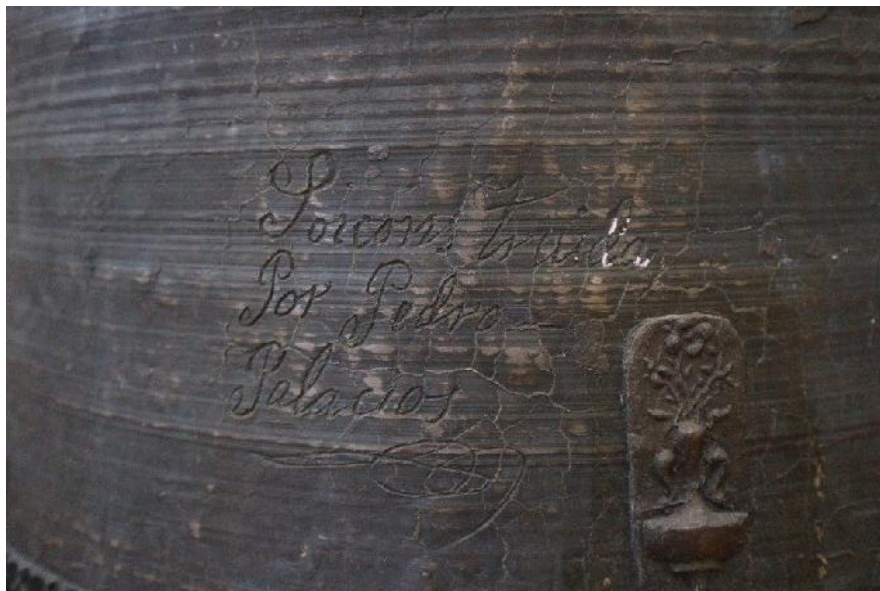 Soiconstruida
Por Pedro
Palacios